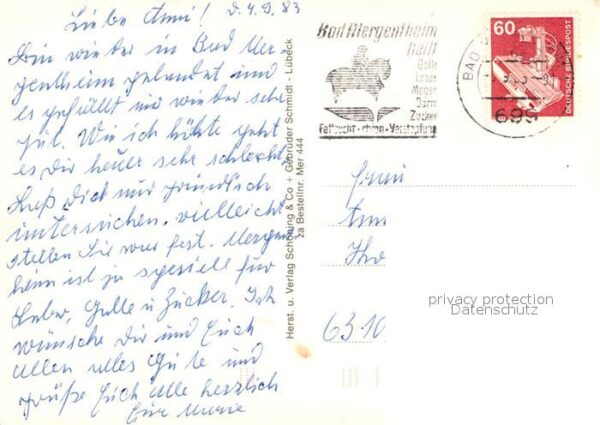 Liebe Anni! D. 4.9.83
Bin wieder in Bad Mer-
gentheim gelandet und
es gefällt mir wieder sehr
gut. Wie ich hörte geht
es Dir heuer sehr schlecht.
Laß Dich mal gründlich
untersuchen, vielleicht
stellen Sie was fest. Mergent
heim ist ja speziell für
Leber, Galle u Zucker. Ich
wünsche Dir und Euch
allen alles Gute und
grüße Euch alle herzlich
Eure Marie
Herst. u. Verlag Schöning & Co + Gebrüder Schmidt - Lübeck
za Bestellnr. Mer 444
Bad Mergentheim
heilt
Galle
Leber
Magen
Darm
Zucker
Fettsucht - chron. Verstopfung
BAD
699
60
DEUTSCHE BUNDESPOST
Frau
Ann
privacy protection
Datenschutz
6310